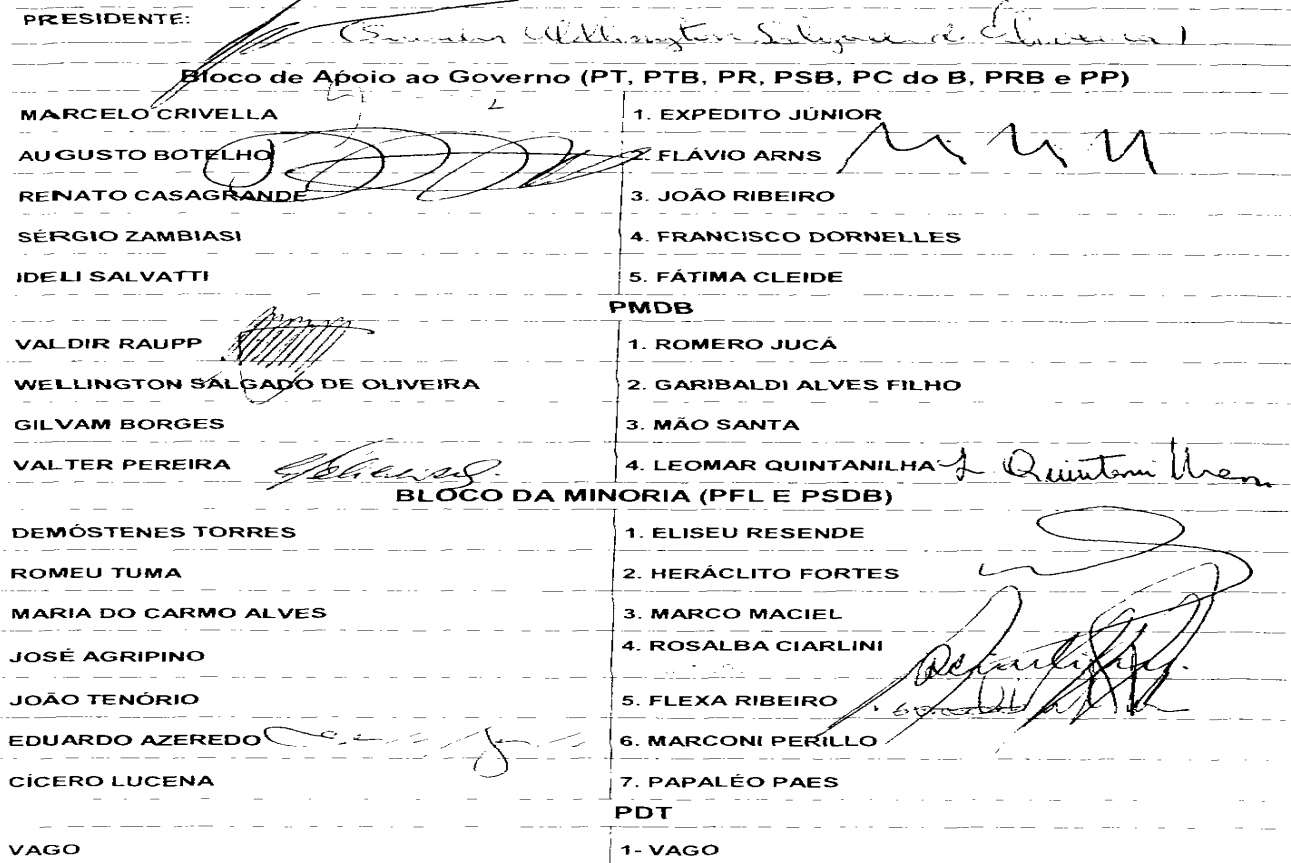 PRESIDENTE:
(Senador Wellington Salgado de Oliveira)
Bloco de Apoio ao Governo (PT, PTB, PR, PSB, PC do B, PRB e PP)
MARCELO CRIVELLA 1. EXPEDITO JÚNIOR
AUGUSTO BOTELHO 2. FLÁVIO ARNS
RENATO CASAGRANDE 3. JOÃO RIBEIRO
SÉRGIO ZAMBIASI 4. FRANCISCO DORNELLES
IDELI SALVATTI 5. FÁTIMA CLEIDE
PMDB
VALDIR RAUPP 1. ROMERO JUCÁ
WELLINGTON SALGADO DE OLIVEIRA 2. GARIBALDI ALVES FILHO
GILVAM BORGES 3. MÃO SANTA
VALTER PEREIRA 4. LEOMAR QUINTANILHA L Quintanilha
BLOCO DA MINORIA (PFL E PSDB)
DEMÓSTENES TORRES 1. ELISEU RESENDE
ROMEU TUMA 2. HERÁCLITO FORTES
MARIA DO CARMO ALVES 3. MARCO MACIEL
JOSÉ AGRIPINO 4. ROSALBA CIARLINI
JOÃO TENÓRIO 5. FLEXA RIBEIRO
EDUARDO AZEREDO 6. MARCONI PERILLO
CÍCERO LUCENA 7. PAPALÉO PAES
PDT
VAGO 1- VAGO